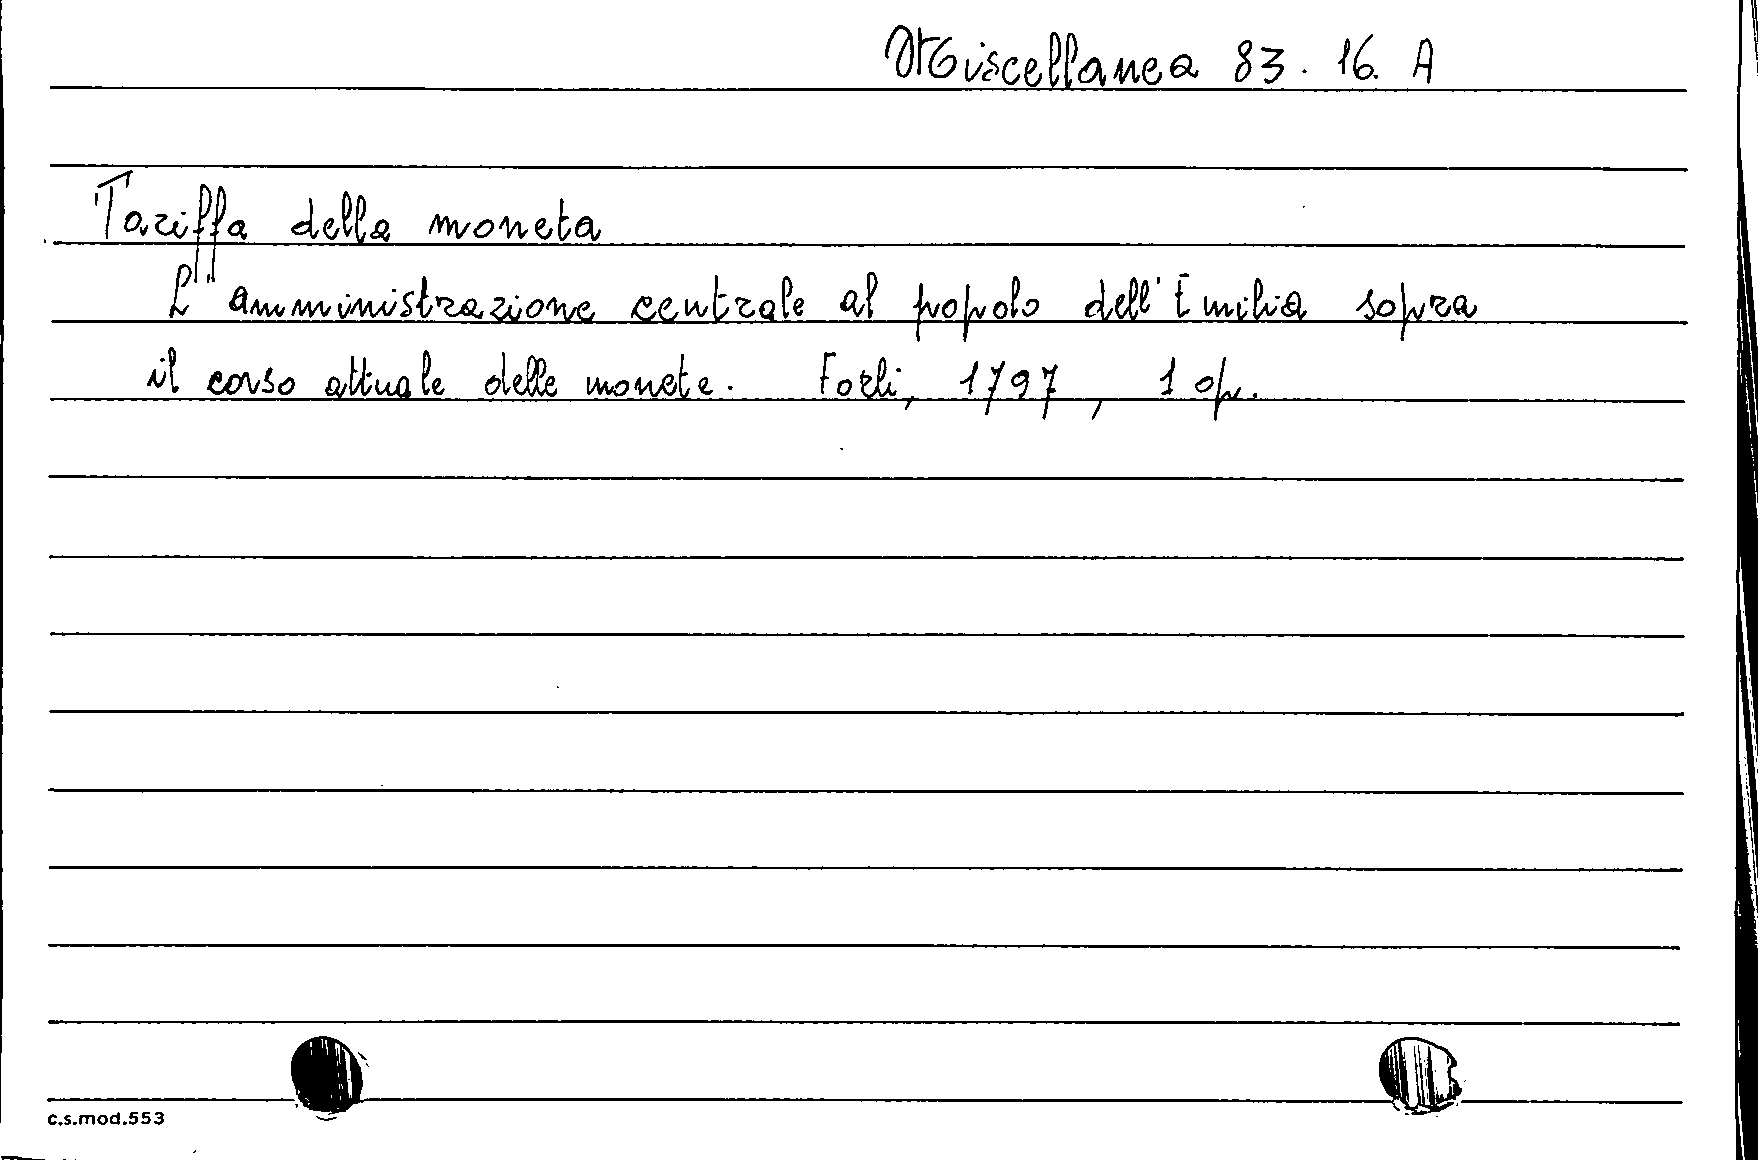 Miscellanea 83. 16. A
Tariffa della moneta
L'amministrazione centrale al popolo dell'Emilia sopra
il corso attuale delle monete. Forlì, 1797, 1 op.
c.s.mod.553